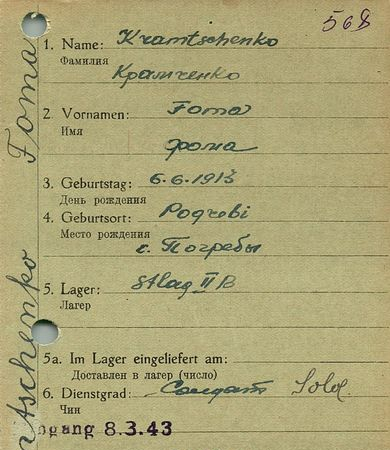 568
1. Name: Kramtschenko
Фамилия
Крамченко
2. Vornamen: Foma
Имя
Фома
3. Geburtstag: 6.6.1913
День рождения
4. Geburtsort: Pogrebi
Место рождения
с. Погребы
5. Lager: Stalag II B
Лагер
5a. Im Lager eingeliefert am:
Доставлен в лагер (число)
6. Dienstgrad: Солдат Sold.
Чин
ngang 8.3.43
tschenko Foma